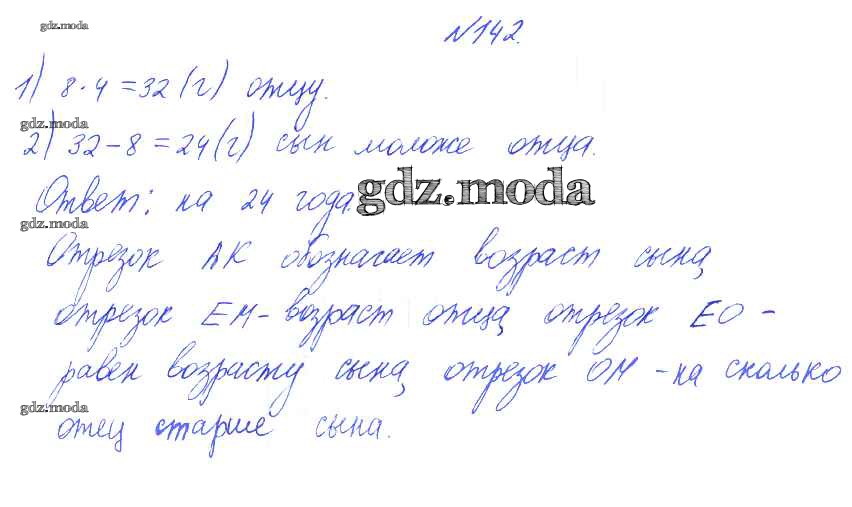 gdz.moda
№142.
1) 8·4=32 (г) отцу.
gdz.moda
2) 32-8=24(г) сын моложе отца.
Ответ: на 24 года.
gdz.moda
gdz.moda
Отрезок АК обозначает возраст сына,
отрезок ЕМ-возраст отца, отрезок ЕО-
равен возрасту сына, отрезок ОМ-на сколько
gdz.moda
отец старше сына.